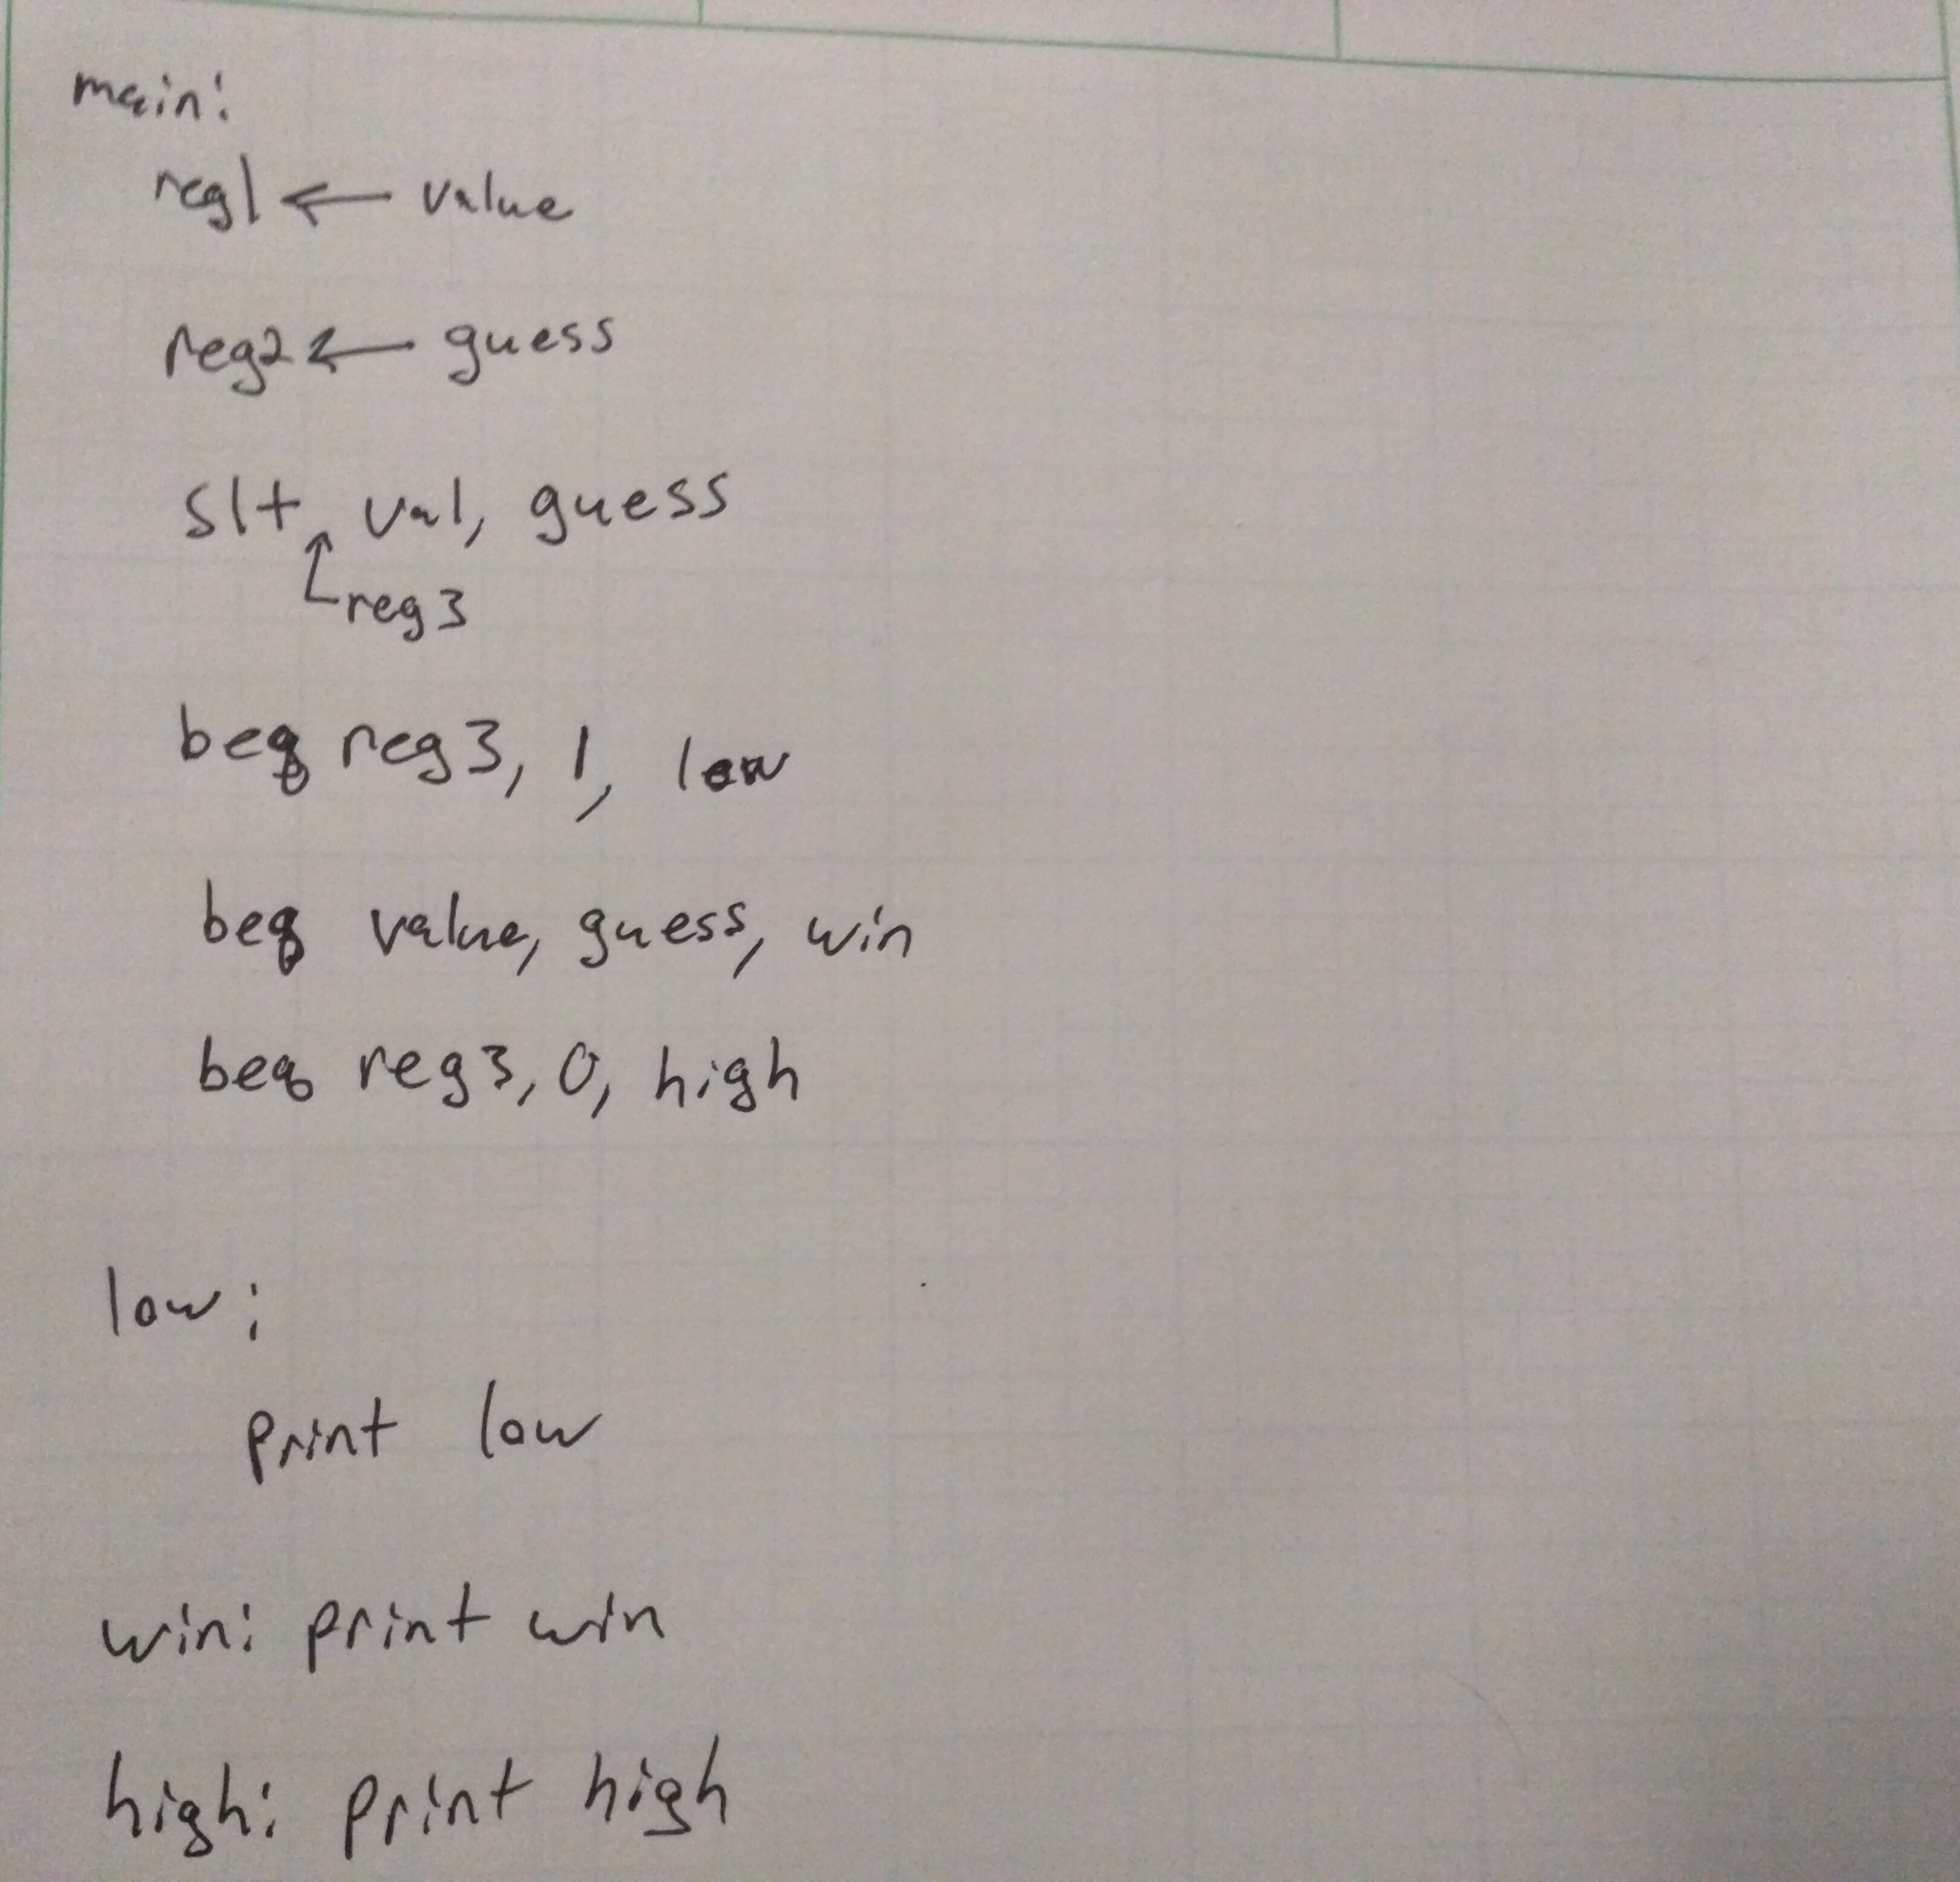 main:
reg1 ← value
reg2 ← guess
slt val, guess
reg3
beq reg3, 1, low
beq value, guess, win
beq reg3, 0, high
low:
print low
win: print win
high: print high